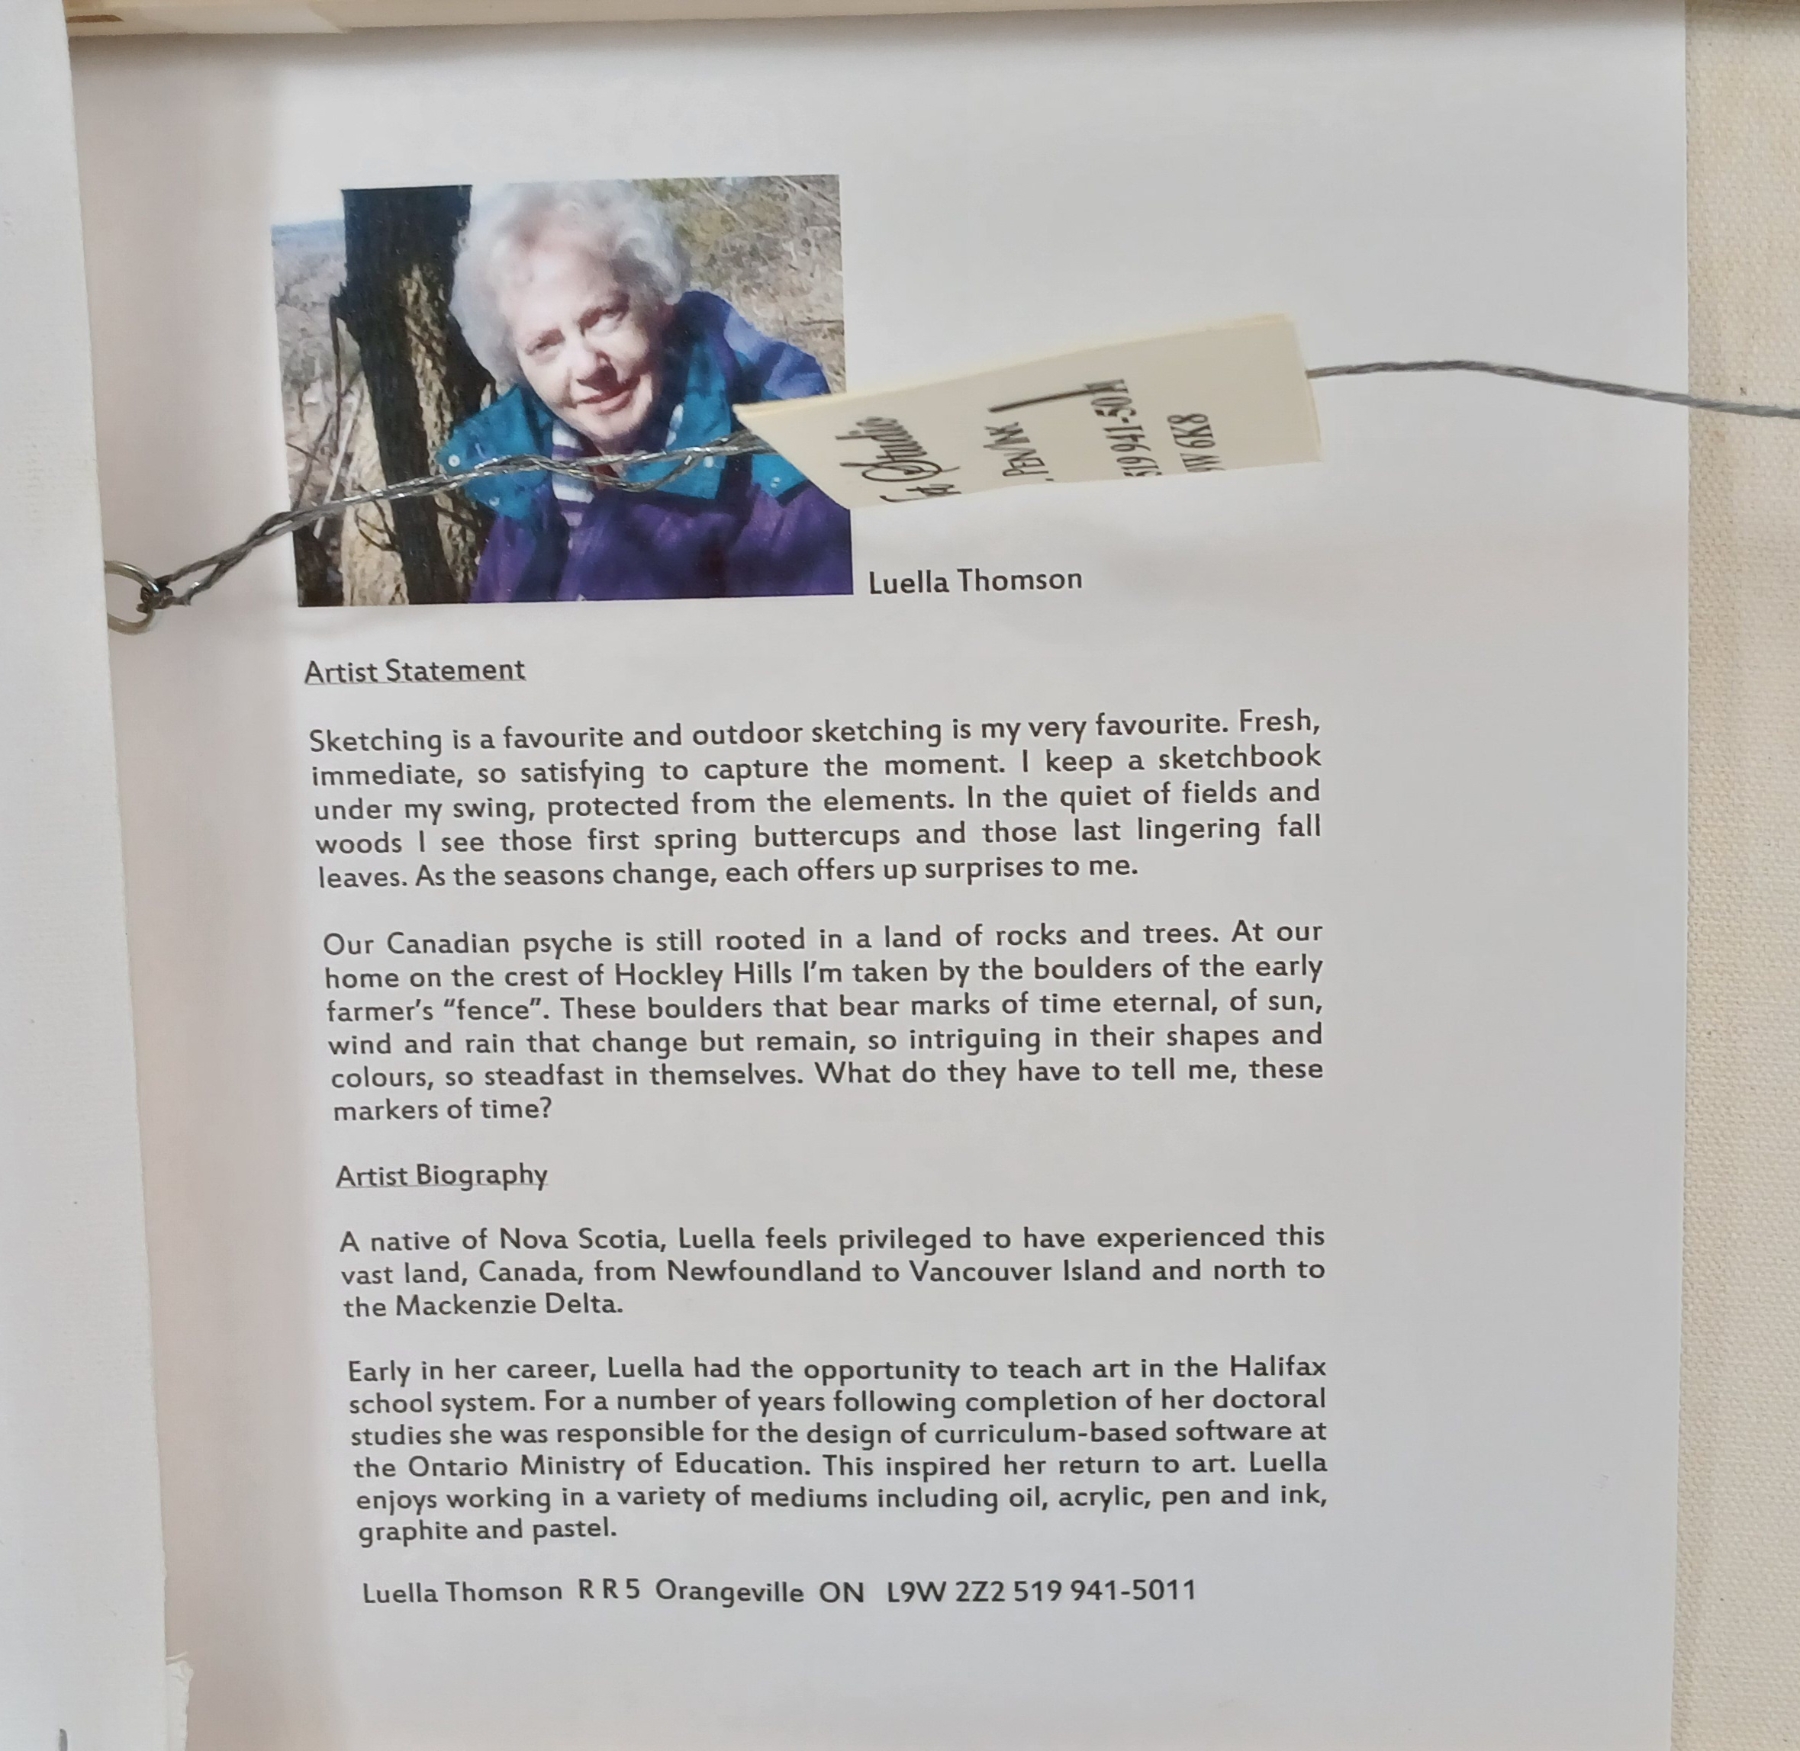 Studio
PEN/INK
519 941-501
W 6X8
Luella Thomson
Artist Statement
Sketching is a favourite and outdoor sketching is my very favourite. Fresh,
immediate, so satisfying to capture the moment. I keep a sketchbook
under my swing, protected from the elements. In the quiet of fields and
woods I see those first spring buttercups and those last lingering fall
leaves. As the seasons change, each offers up surprises to me.
Our Canadian psyche is still rooted in a land of rocks and trees. At our
home on the crest of Hockley Hills I'm taken by the boulders of the early
farmer's “fence”. These boulders that bear marks of time eternal, of sun,
wind and rain that change but remain, so intriguing in their shapes and
colours, so steadfast in themselves. What do they have to tell me, these
markers of time?
Artist Biography
A native of Nova Scotia, Luella feels privileged to have experienced this
vast land, Canada, from Newfoundland to Vancouver Island and north to
the Mackenzie Delta.
Early in her career, Luella had the opportunity to teach art in the Halifax
school system. For a number of years following completion of her doctoral
studies she was responsible for the design of curriculum-based software at
the Ontario Ministry of Education. This inspired her return to art. Luella
enjoys working in a variety of mediums including oil, acrylic, pen and ink,
graphite and pastel.
Luella Thomson R R 5 Orangeville ON L9W 2Z2 519 941-5011